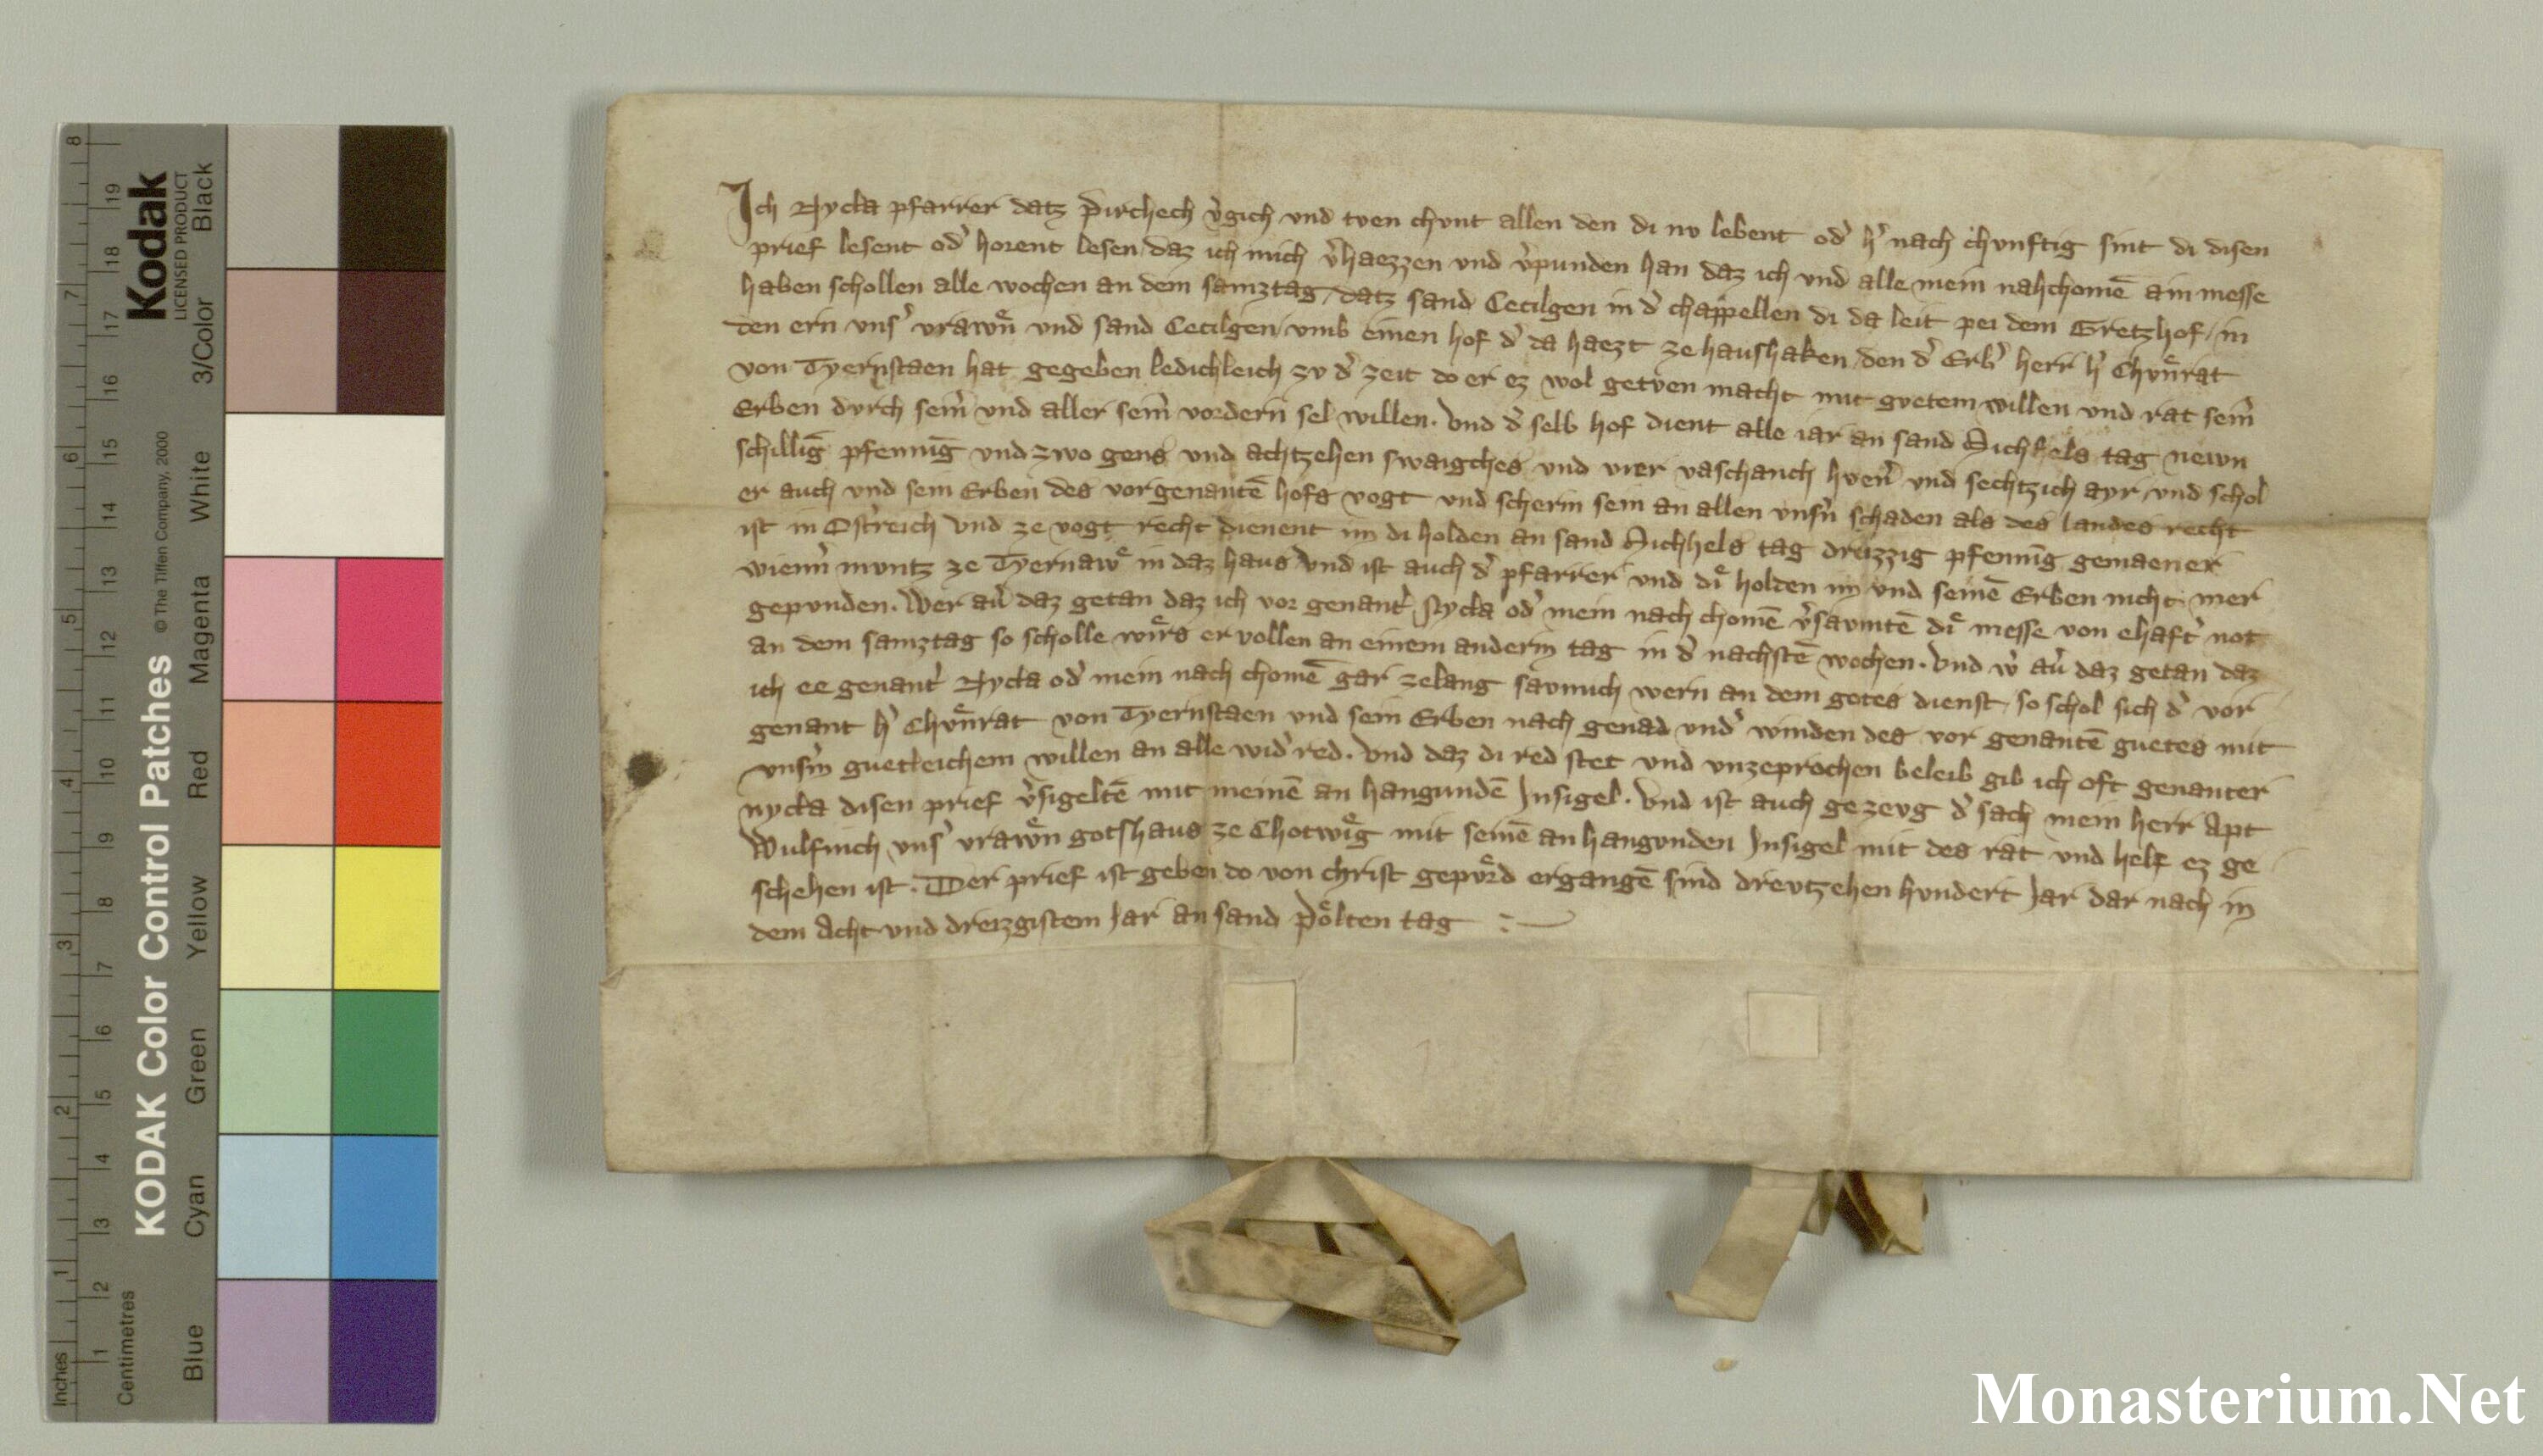 Ich Nycla pfarrer datz Pirchech v̾gich vnd tven chvnt allen den di nv lebent od̾ h̾ nach chvnftig sint di disen
prief lesent od̾ horent lesen daz ich mich v̾haezzen vnd v̾punden han daz ich vnd alle mein nahchomē ain messe
haben schollen alle wochen an dem samztag datz sand Cecilgen in d̾ chappellen di da leit pei dem Gretzhof / in
den ern vns̾ vrawn̄ vnd sand Cecilgen vmb einen hof d̾ da haezt ze haushaken den d̾ Erb̾ herr h̾ Chvnͤrat
von Tyernstaen hat gegeben ledichleich zv d̾ zeit do er ez wol getven macht mit gvetem willen vnd rat sein̾
Erben dvrch sein̾ vnd aller sein̾ vordern sel willen. Vnd d̾ selb hof dient alle iar an sand Michhels tag newn
schillīg pfennīg vnd zwo gens vnd achtzehen swaigches vnd vier vaschanch hven̾ vnd sechtzich ayr vnd schol
er auch vnd sein Erben des vorgenantē hofs vogt vnd scherm sein an allen vnsn̾ schaden als des landes recht
ist in Ost̾reich Vnd ze vogt recht dienent im di holden an sand Michhels tag dreizzig pfennīg gemaener
wienn̾ mvntz ze Tyernawͤ in daz haus Vnd ist auch d̾ pfarrer vnd diͤ holden im vnd seinē Erben nicht mer
gepvnden. Wer av̾ daz getan daz ich vor genant̾ Nycla od̾ mein nach chomē v̾savmtē diͤ messe von ehaft̾ not
an dem samztag so scholle wirͤs ervollen an einem anderm tag in d̾ nachstē wochen. Vnd w̾ av̾ daz getan daz
ich ee genant̾ Nycla od̾ mein nach chomē gar zelang savmich wern an dem gotes dienst, so schol sich d̾ vor
genant h̾ Chvnͤrat von Tyernstaen vnd sein Erben nach genad vnd̾ winden des vor genantē guetes mit
vnsm̾ guetleichem willen an alle wid̾ red. Vnd daz di red stet vnd vnzeprochen beleib gib ich oft genanter
nycla disen prief v̾sigeltē mit meinē an hangundē Insigel. Vnd ist auch gezevg d̾ sach mein herr Apt
Wulfinch vns̾ vrawͤn gotshaus ze Chotwiͤg mit seinē an hangvnden Insigel mit des rat vnd helf ez ge
schehen ist. Der prief ist geben do von christ gepvͤrd ergangē sind drevtzehen hvndert Jar dar nach in
dem Acht vnd dreizgistem Jar an sand Pöͤlten tag :—
Kodak
LICENSED PRODUCT
KODAK Color Control Patches
© The Tiffen Company, 2000
Black
3/Color
White
Magenta
Red
Yellow
Green
Cyan
Blue
Inches
1 2 3 4 5 6 7 8
Centimetres
1 2 3 4 5 6 7 8 9 10 11 12 13 14 15 16 17 18 19
Monasterium.Net